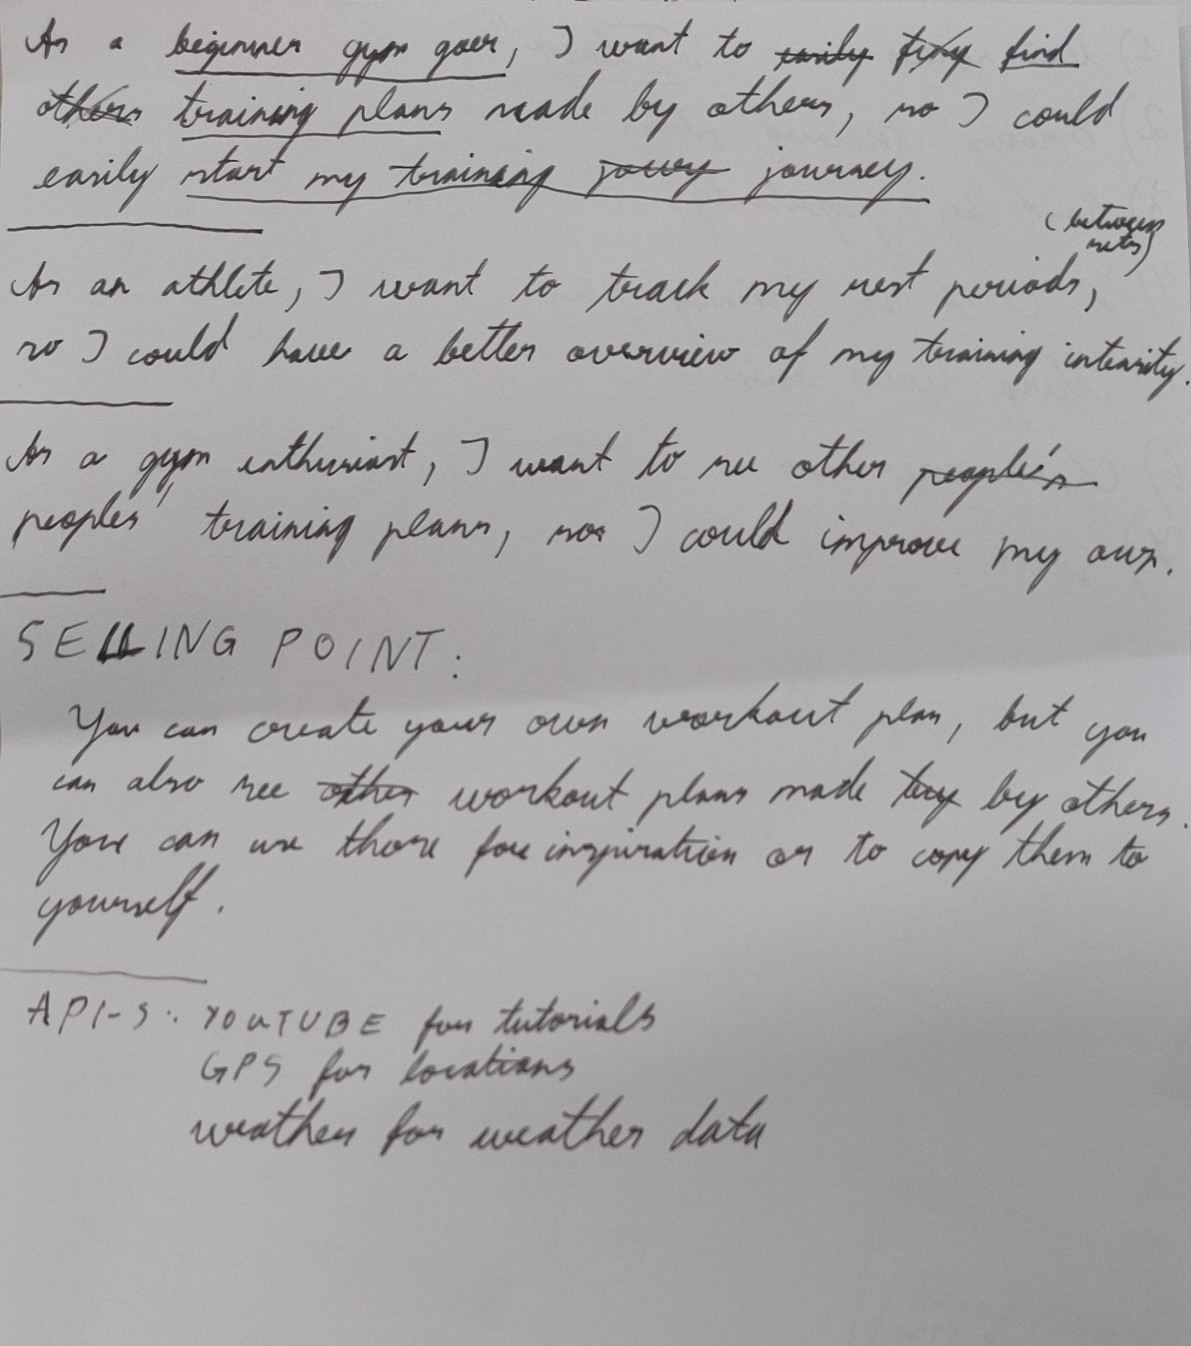 As a beginner gym goer, I want to easily find
others training plans made by others, so I could
easily start my training journey.
(between
sets)
As an athlete, I want to track my rest periods,
so I could have a better overview of my training intensity.
As a gym enthusiast, I want to see other people's
peoples' training plans, so I could improve my own.
SELLING POINT:
You can create your own workout plan, but you
can also see other workout plans made by others.
You can use those for inspiration or to copy them to
yourself.
API-S: YOUTUBE for tutorials
GPS for locations
weather for weather data